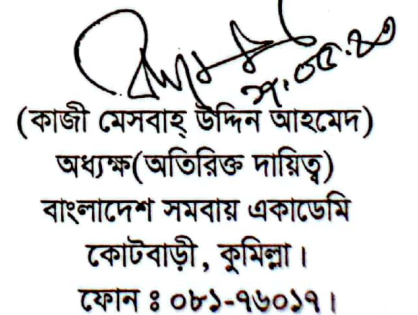 (কাজী মেসবাহ্ উদ্দিন আহমেদ)
অধ্যক্ষ(অতিরিক্ত দায়িত্ব)
বাংলাদেশ সমবায় একাডেমি
কোটবাড়ী, কুমিল্লা।
ফোন ঃ ০৮১-৭৬০১৭।